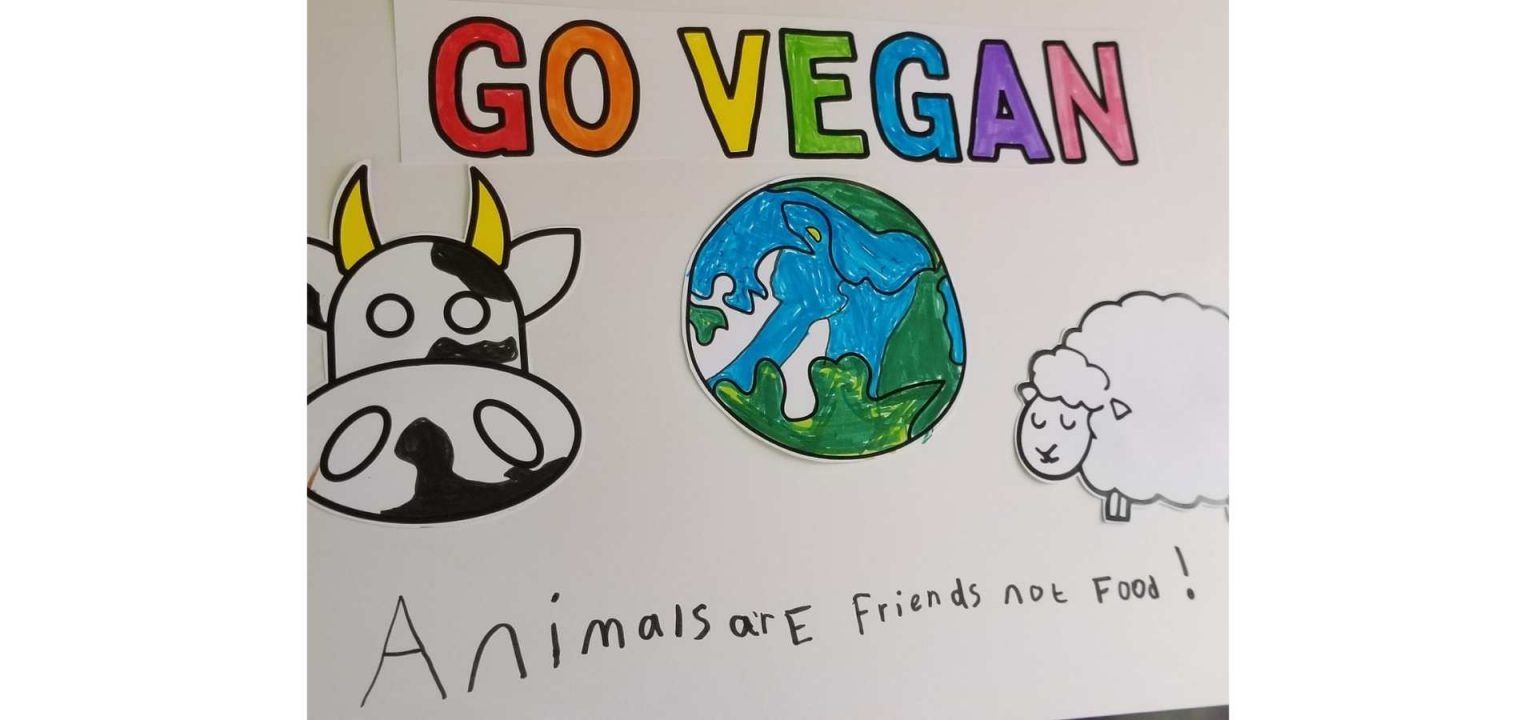 GO VEGAN
Animals arE Friends not Food!